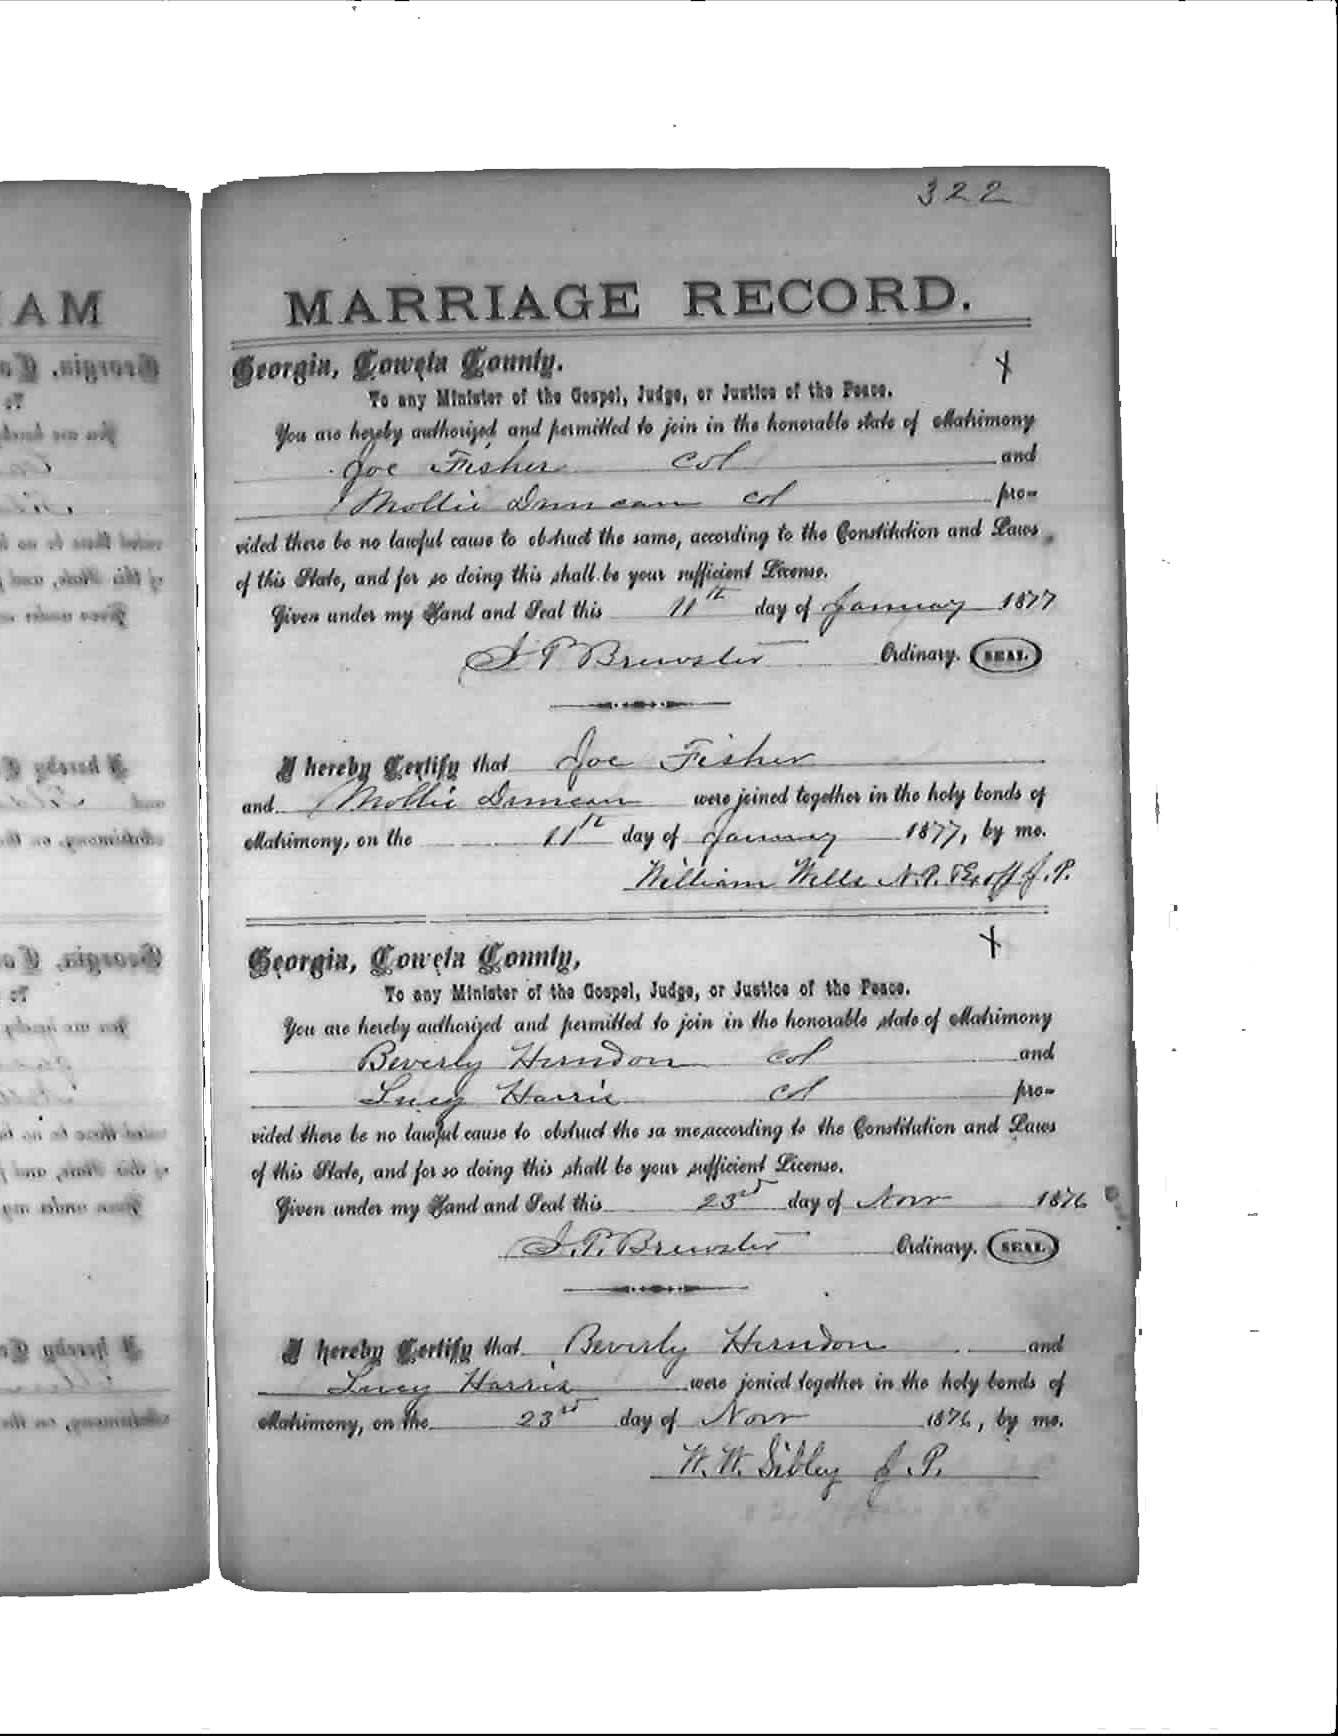 322
MARRIAGE RECORD.
Georgia, Coweta County.
To any Minister of the Gospel, Judge, or Justice of the Peace.
You are hereby authorized and permitted to join in the honorable state of Matrimony
Joe Fisher col and
Mollie Duncan col pro-
vided there be no lawful cause to obstruct the same, according to the Constitution and Laws
of this State, and for so doing this shall be your sufficient License.
Given under my Hand and Seal this 11th day of January 1877
J P Brewster Ordinary. SEAL.
I hereby Certify that Joe Fisher
and Mollie Duncan were joined together in the holy bonds of
Matrimony, on the 11th day of January 1877, by me.
William Wells N.P. & Ex off J.P.
Georgia, Coweta County,
To any Minister of the Gospel, Judge, or Justice of the Peace.
You are hereby authorized and permitted to join in the honorable state of Matrimony
Beverly Herndon col and
Lucy Harris col pro-
vided there be no lawful cause to obstruct the sa me,according to the Constitution and Laws
of this State, and for so doing this shall be your sufficient License.
Given under my Hand and Seal this 23rd day of Novr 1876
J.P. Brewster Ordinary. SEAL.
I hereby Certify that Beverly Herndon and
Lucy Harris were jonied together in the holy bonds of
Matrimony, on the 23rd day of Novr 1876, by me.
W. W. Sibley J.P.